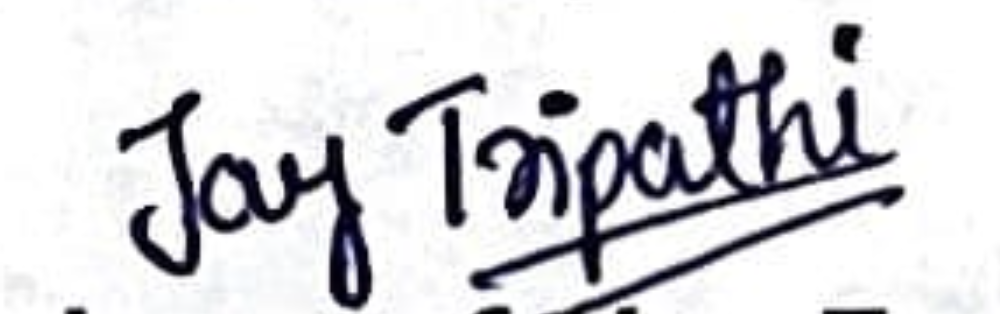 Jay Tripathi